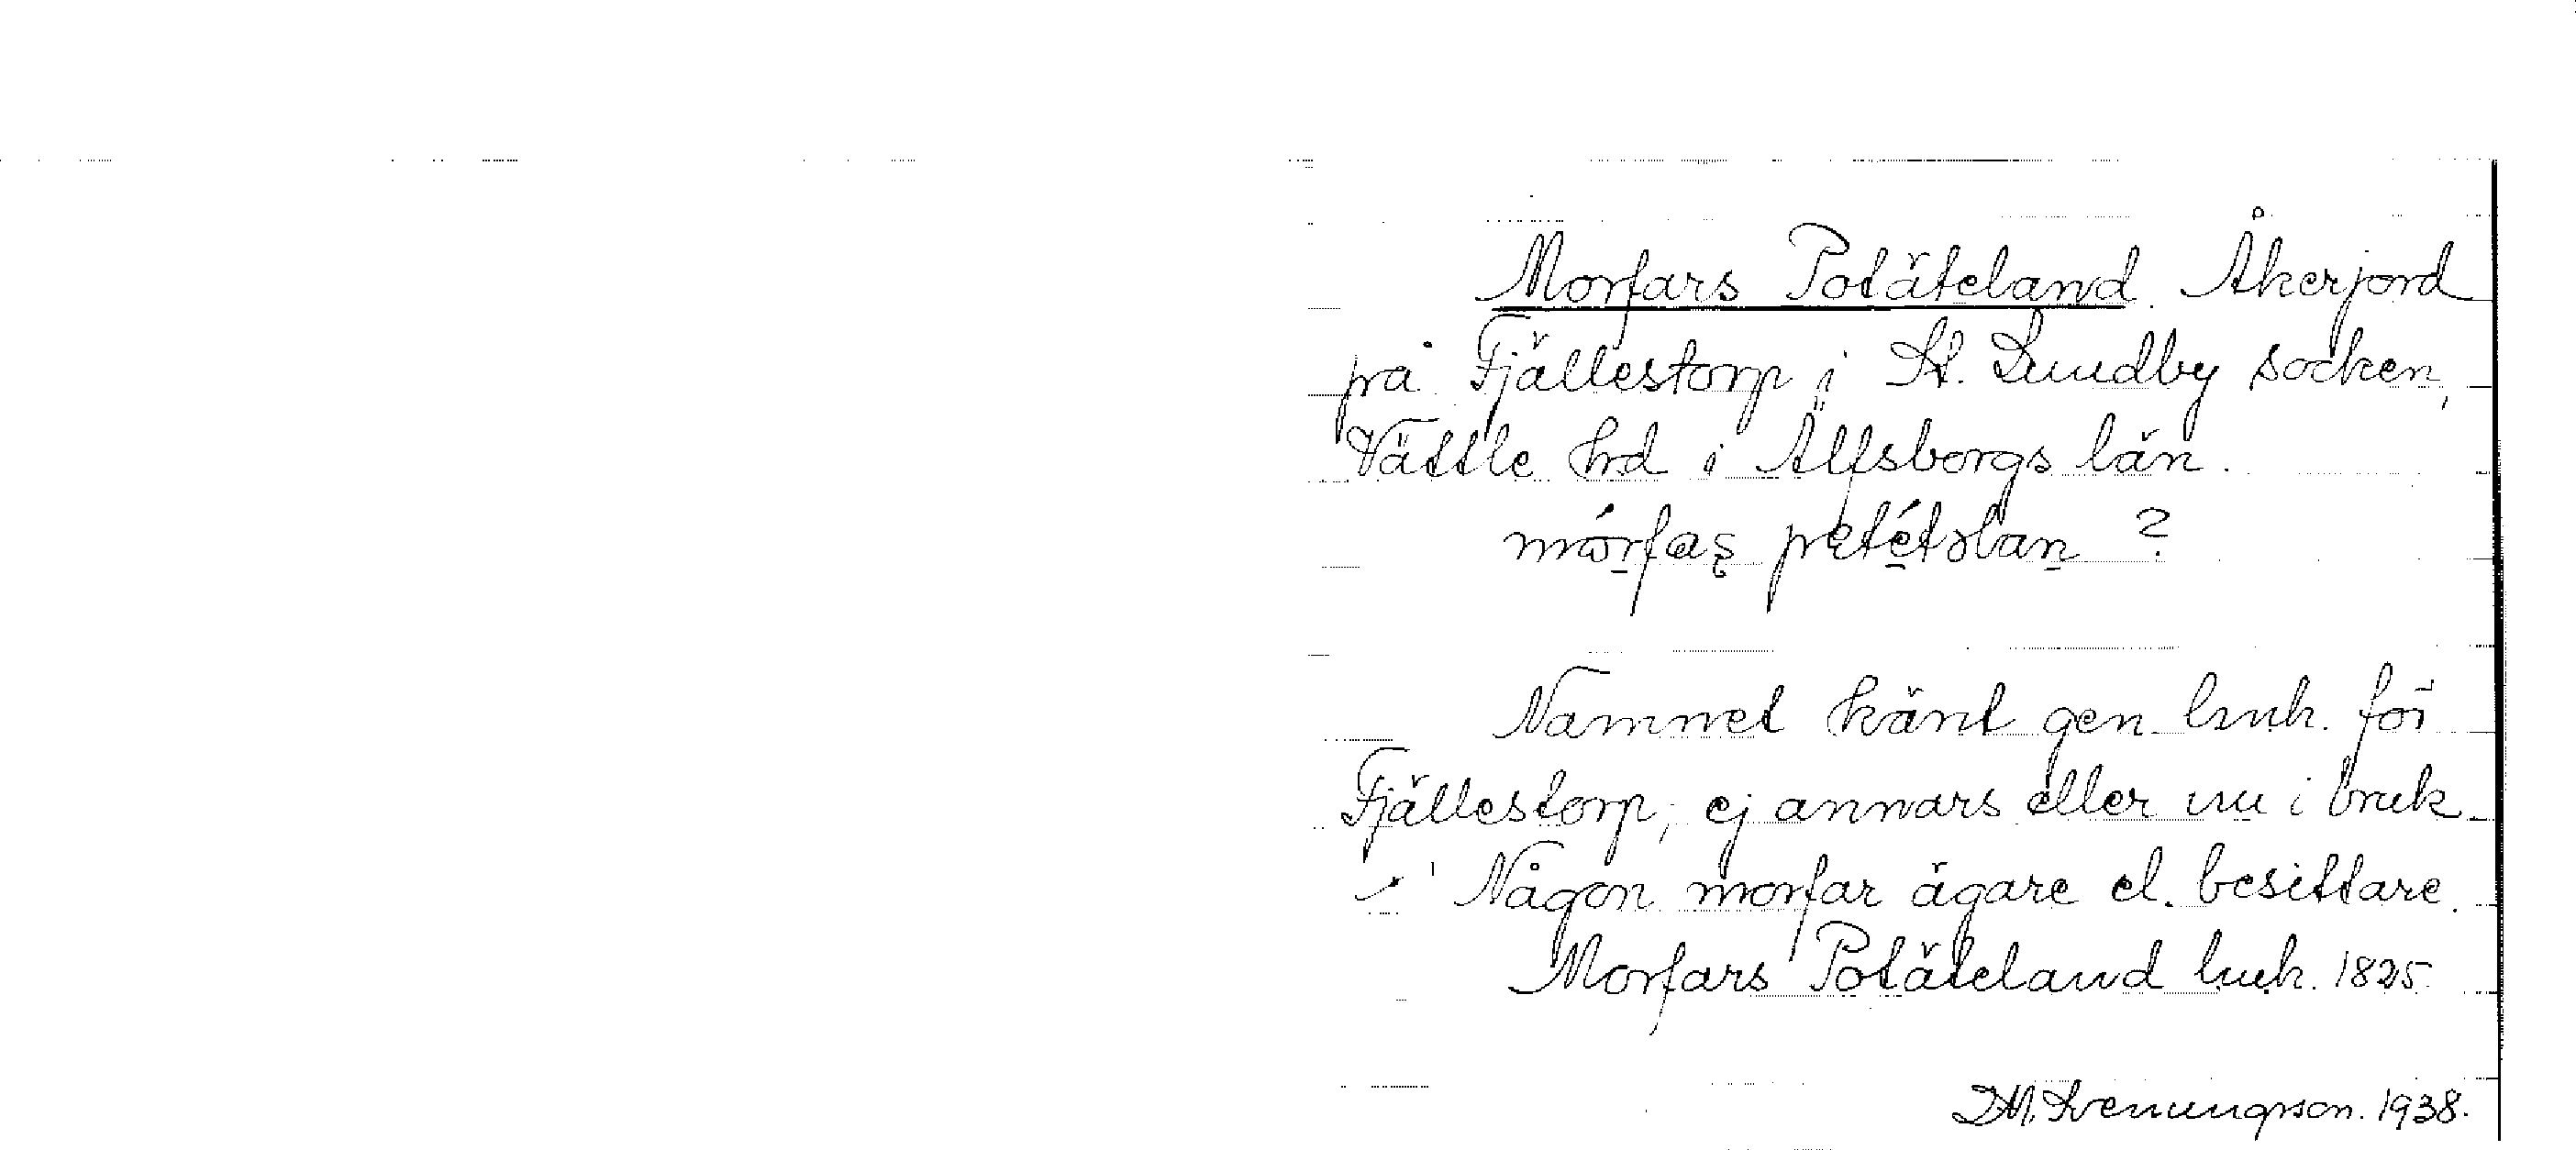 Morfars Potäteland. Åkerjord
på Fjällestorp i St. Lundby socken,
Vättle hrd i Älfsborgs län.
mórfas petétəlan ?
Namnet känt gen. lmk. för
Fjällestorp; ej annars eller nu i bruk.
Någon morfar ägare el. besittare.
Morfars Potäteland lmk. 1825.
D.M. Svenungsson. 1938.